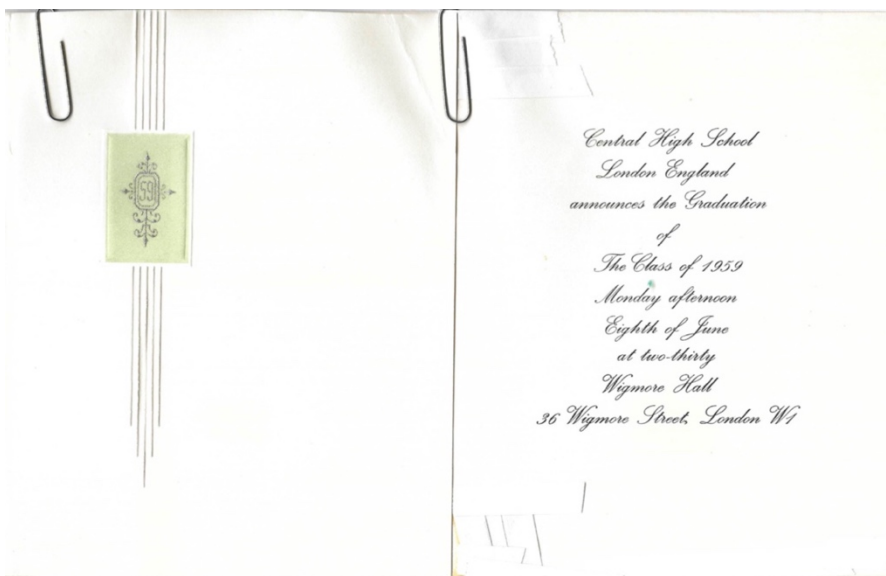 59
Central High School
London England
announces the Graduation
of
The Class of 1959
Monday afternoon
Eighth of June
at two-thirty
Wigmore Hall
36 Wigmore Street, London W1